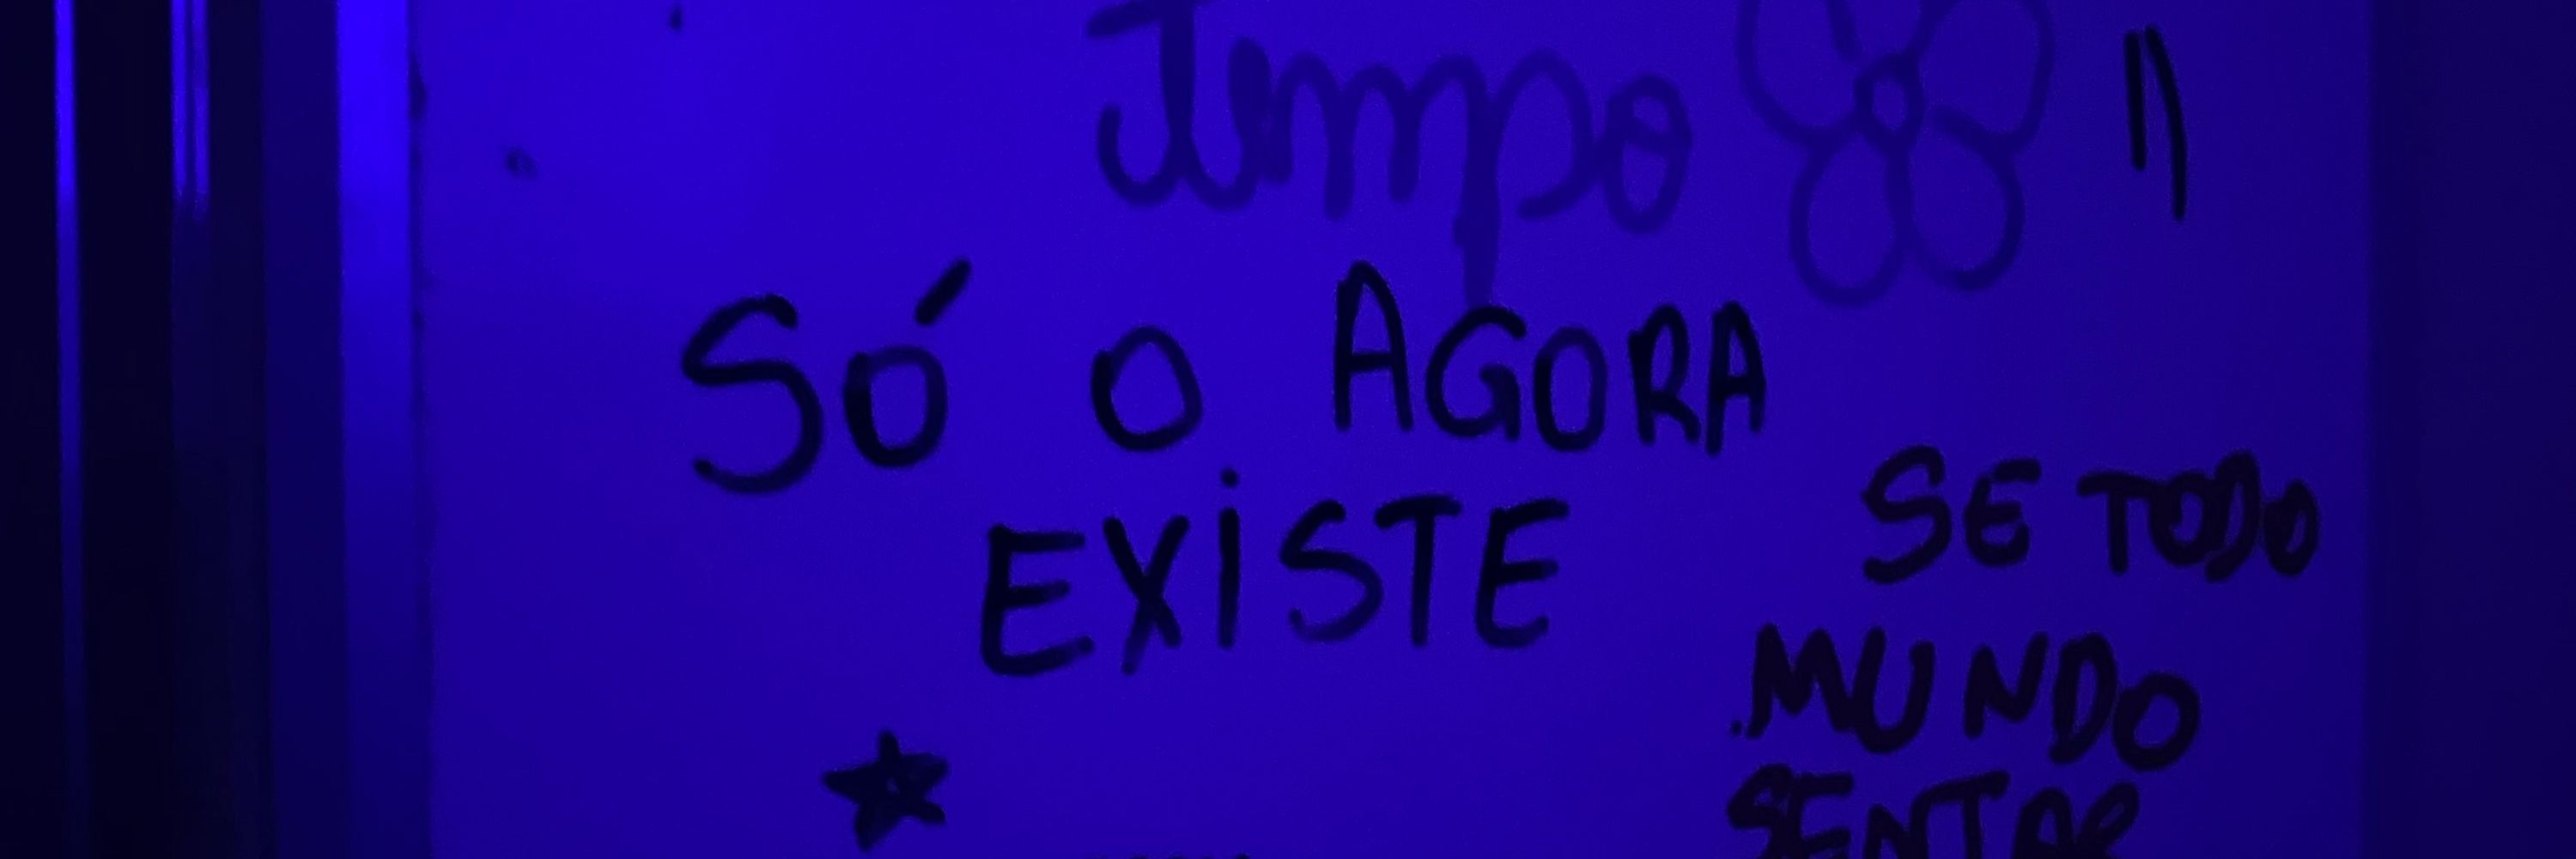 Tempo
SÓ O AGORA
EXISTE
SE TODO
MUNDO
SENTAR